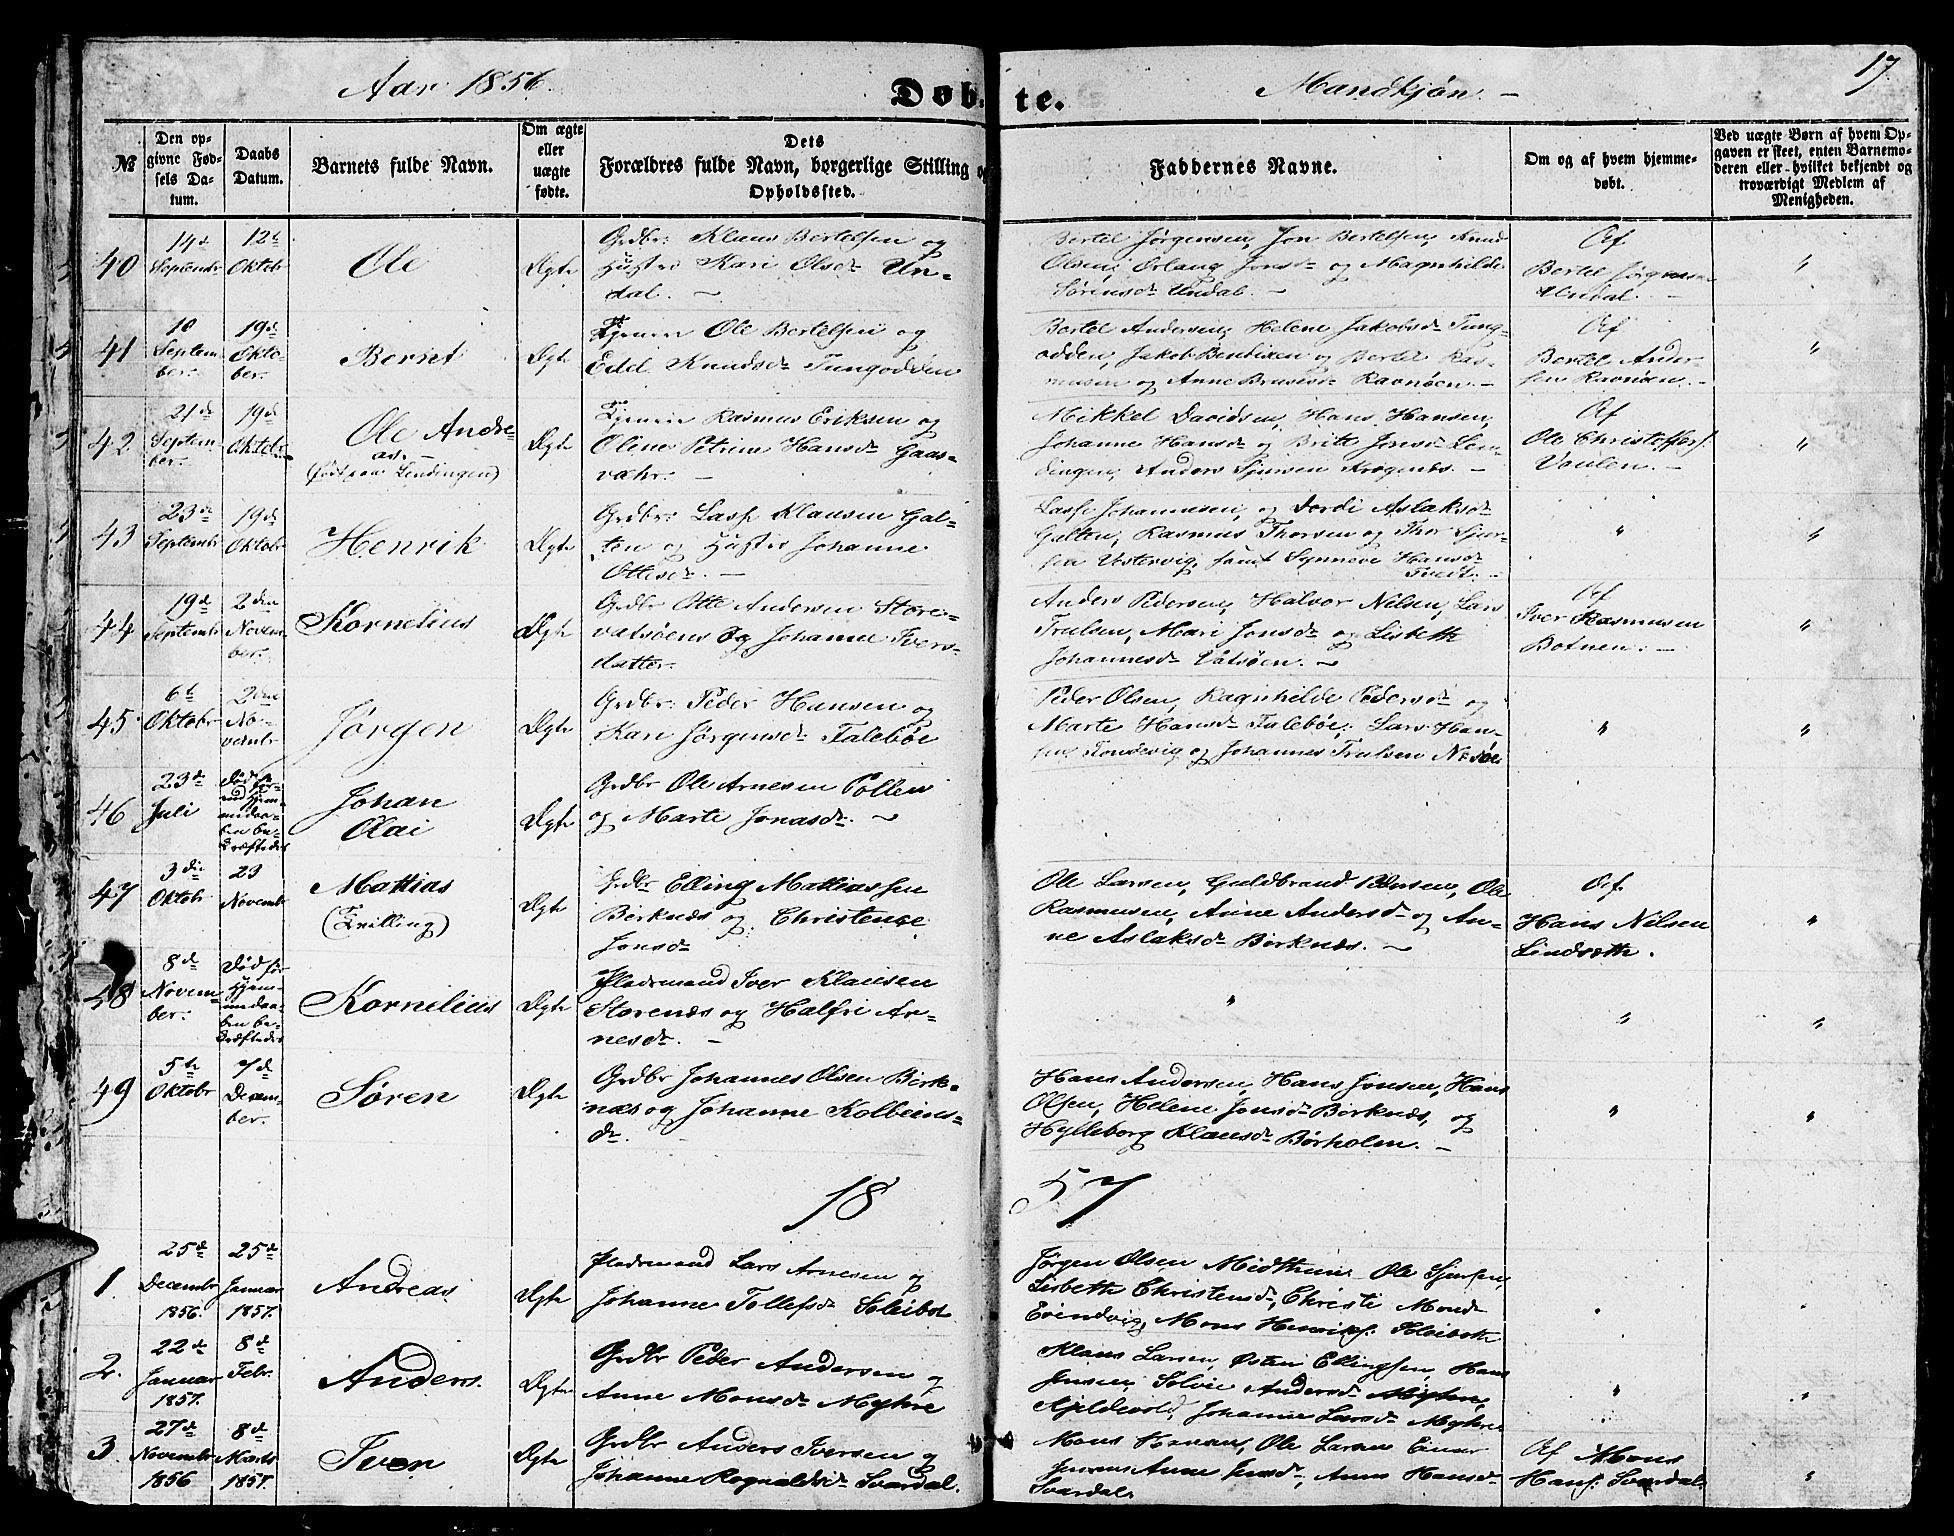 Aar 1856.
Døbte.
Mandkjøn.
17
№
Den opgivne Fødsels Datum.
Daabs Datum.
Barnets fulde Navn.
Om ægte eller uægte fødte.
Dets Forældres fulde Navn, borgerlige Stilling og Opholdssted.
Faddernes Navne.
Om og af hvem hjemmedøbt.
Ved uægte Børn af hvem Opgaven er skeet, enten Barnemoderen eller hvilket bekjendt og troværdigt Medlem af Menigheden.
40
14de Septembr
12te Oktobr
Ole
Ægte
Grdbr: Klaus Bertelsen og
Hustru Kari Olsdr Un-
dal.
Bertel Jørgensen, Jon Bertelsen, Knud
Olsen, Ørlaug Jonsdr og Magnhilde
Sørensdr Undal.
Af
Bertel Jørgensen
Undal.
"
41
10 Septem-
ber.
19de Okto-
ber.
Bernt
Ægte
Tjener Ole Bertelsen og
Edel Knudsdr Tungodden
Bertel Andersen, Helene Jakobsdr Tung-
odden, Jakob Bendixen og Bertel Ras-
musen og Anne Brusesdr Ravnøen.
Af
Bertel Ander-
sen Ravnøen.
"
42
21de Septem-
ber.
19de Oktober
Ole Andre-
as.
(født paa Lendingen)
Ægte
Tjener Rasmus Eriksen og
Oline Petrine Hansdr Gaas-
vahr.
Mikkel Davidsen, Hans Hansen,
Johanne Hansdr og Brite Jonsdr Len-
dingen, Anders Sjursen Krogenes.
Af
Ole Christoffers.
Vaulen.
"
43
23de Septembr
19de Oktobr
Henrik
Ægte
Grdbr: Lasse Klausen Gal-
ten og Hustru Johanne
Ottesdr.
Lasse Johannesen, og Dordi Aslaksdr
Galten, Rasmus Thorsen og Thor Sjur-
sen Vestervig, samt Synneve Hansdr
Tveit.
"
"
44
19de Septembr
2den Novem-
ber.
Kornelius
Ægte
Grdbr Otte Andersen Store-
vatsøens og Johanne Ivers-
datter.
Anders Pedersen, Halvor Nilsen, Lars
Trulsen, Mari Jonsdr og Lisbeth
Johannesdr Vatsøen.
Af
Iver Rasmusen
Botnen.
"
45
6te Oktobr
2den No-
vembr
Jørgen
Ægte
Grdbr: Peder Hansen og
Kari Jørgensdr Talebøe
Peder Olsen, Ragnhilde Pedersdr og
Marte Hansdr Talebøe, Lars Han-
sen Tondevig og Johannes Trulsen Nesøe
"
"
46
23de Juli
Død fø-
rend Hjem-
medaa-
ben be-
kræftedes
Johan
Olai
Ægte
Grdbr Ole Arnesen Pollen
og Marte Jonasdr.
47
3die Oktobr
23 Novembr
Mattias
(Tvilling)
Ægte
Grdbr Elling Mattiassen
Birknes og Christense
Jonsdr
Ole Larsen, Guldbrand Pedersen, Ole
Rasmusen, Anne Andersdr og An-
ne Aslaksdr Birknæs.
Af
Hans Nilsen
Lindseth.
"
48
8de Novem-
ber.
Død før
Hjem-
medaa-
ben be-
kræftedes
Kornelius
Ægte
Pladsmand Iver Klausen
Storenæs og Halfri Ar-
nesdr.
"
"
"
49
5te Oktobr
7de Decem-
ber.
Søren
Ægte
Grdbr Johannes Olsen Birk-
næs og Johanne Kolbeins-
dr.
Hans Andersen, Hans Jonsen, Hans
Olsen, Helene Jonsdr Birknæs, og
Hylleborg Klausdr Børholm.
"
"
18 57
1.
25de Decembr 1856.
25de Januar 1857.
Andreas
Ægte
Pladsmand Lars Arnesen og
Johanne Tollefsdr Soleibot
Jørgen Olsen Midthun, Ole Sjursen,
Lisbeth Christensdr, Christi Monsdr
Evindvig, Mons Henriks. Soleibot
"
"
2.
22de Januar 1857.
8de Febr.
Anders.
Ægte
Grdbr Peder Andersen og
Anne Monsdr Myhre
Klaus Larsen, Østen Ellingsen, Hans
Jensen, Solvie Andersdr Myhre,
Kjeldevold, Johanne Larsdr Myhre
"
"
3.
27de Novembr 1856
8de Marts 1857.
Iver
Ægte
Grdbr Anders Iversen og
Johanne Rognaldsdr Svardal.
Mons Hansen, Ole Larsen Einar
Jensen Anne Jensdr, Anne Hansdr
Svardal.
Af Mons
Hans. Svardal.
"